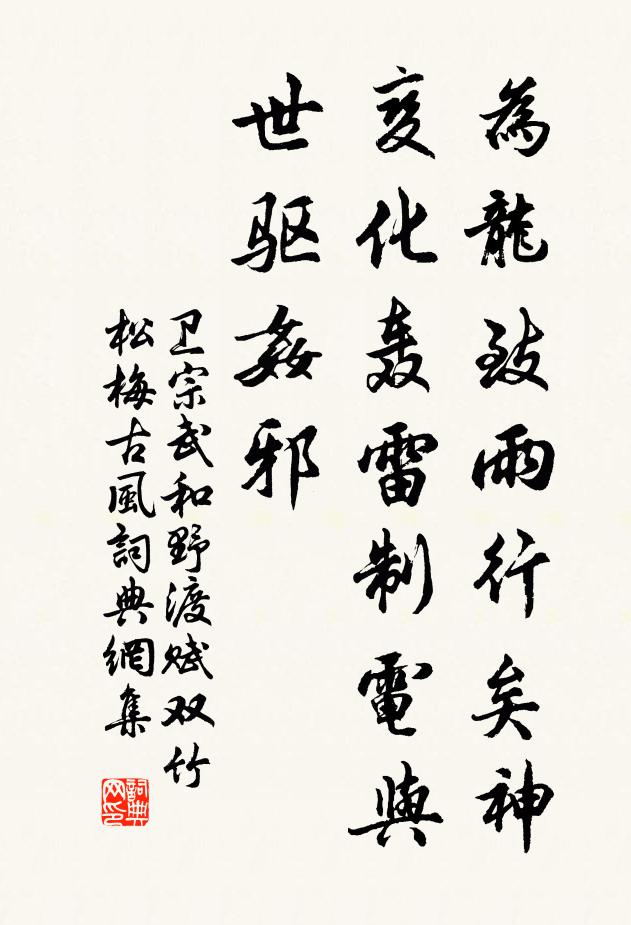 為龍致雨行矣神
变化轰雷制電與
世驱姦邪
卫宗武和野渡赋双竹
松梅古風詞典網集
詞典
网印